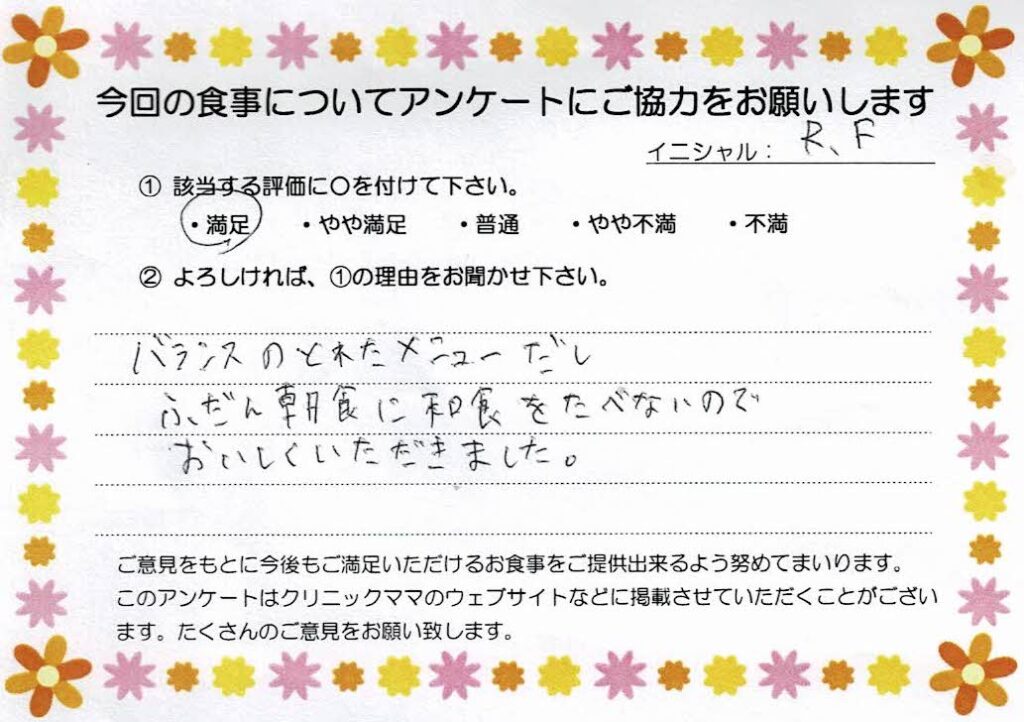 今回の食事についてアンケートにご協力をお願いします
イニシャル： R、F
① 該当する評価に○を付けて下さい。
・満足 ・やや満足 ・普通 ・やや不満 ・不満
② よろしければ、①の理由をお聞かせ下さい。
バランスのとれたメニューだし
ふだん朝食に和食をたべないので
おいしくいただきました。
ご意見をもとに今後もご満足いただけるお食事をご提供出来るよう努めてまいります。
このアンケートはクリニックママのウェブサイトなどに掲載させていただくことがござい
ます。たくさんのご意見をお願い致します。